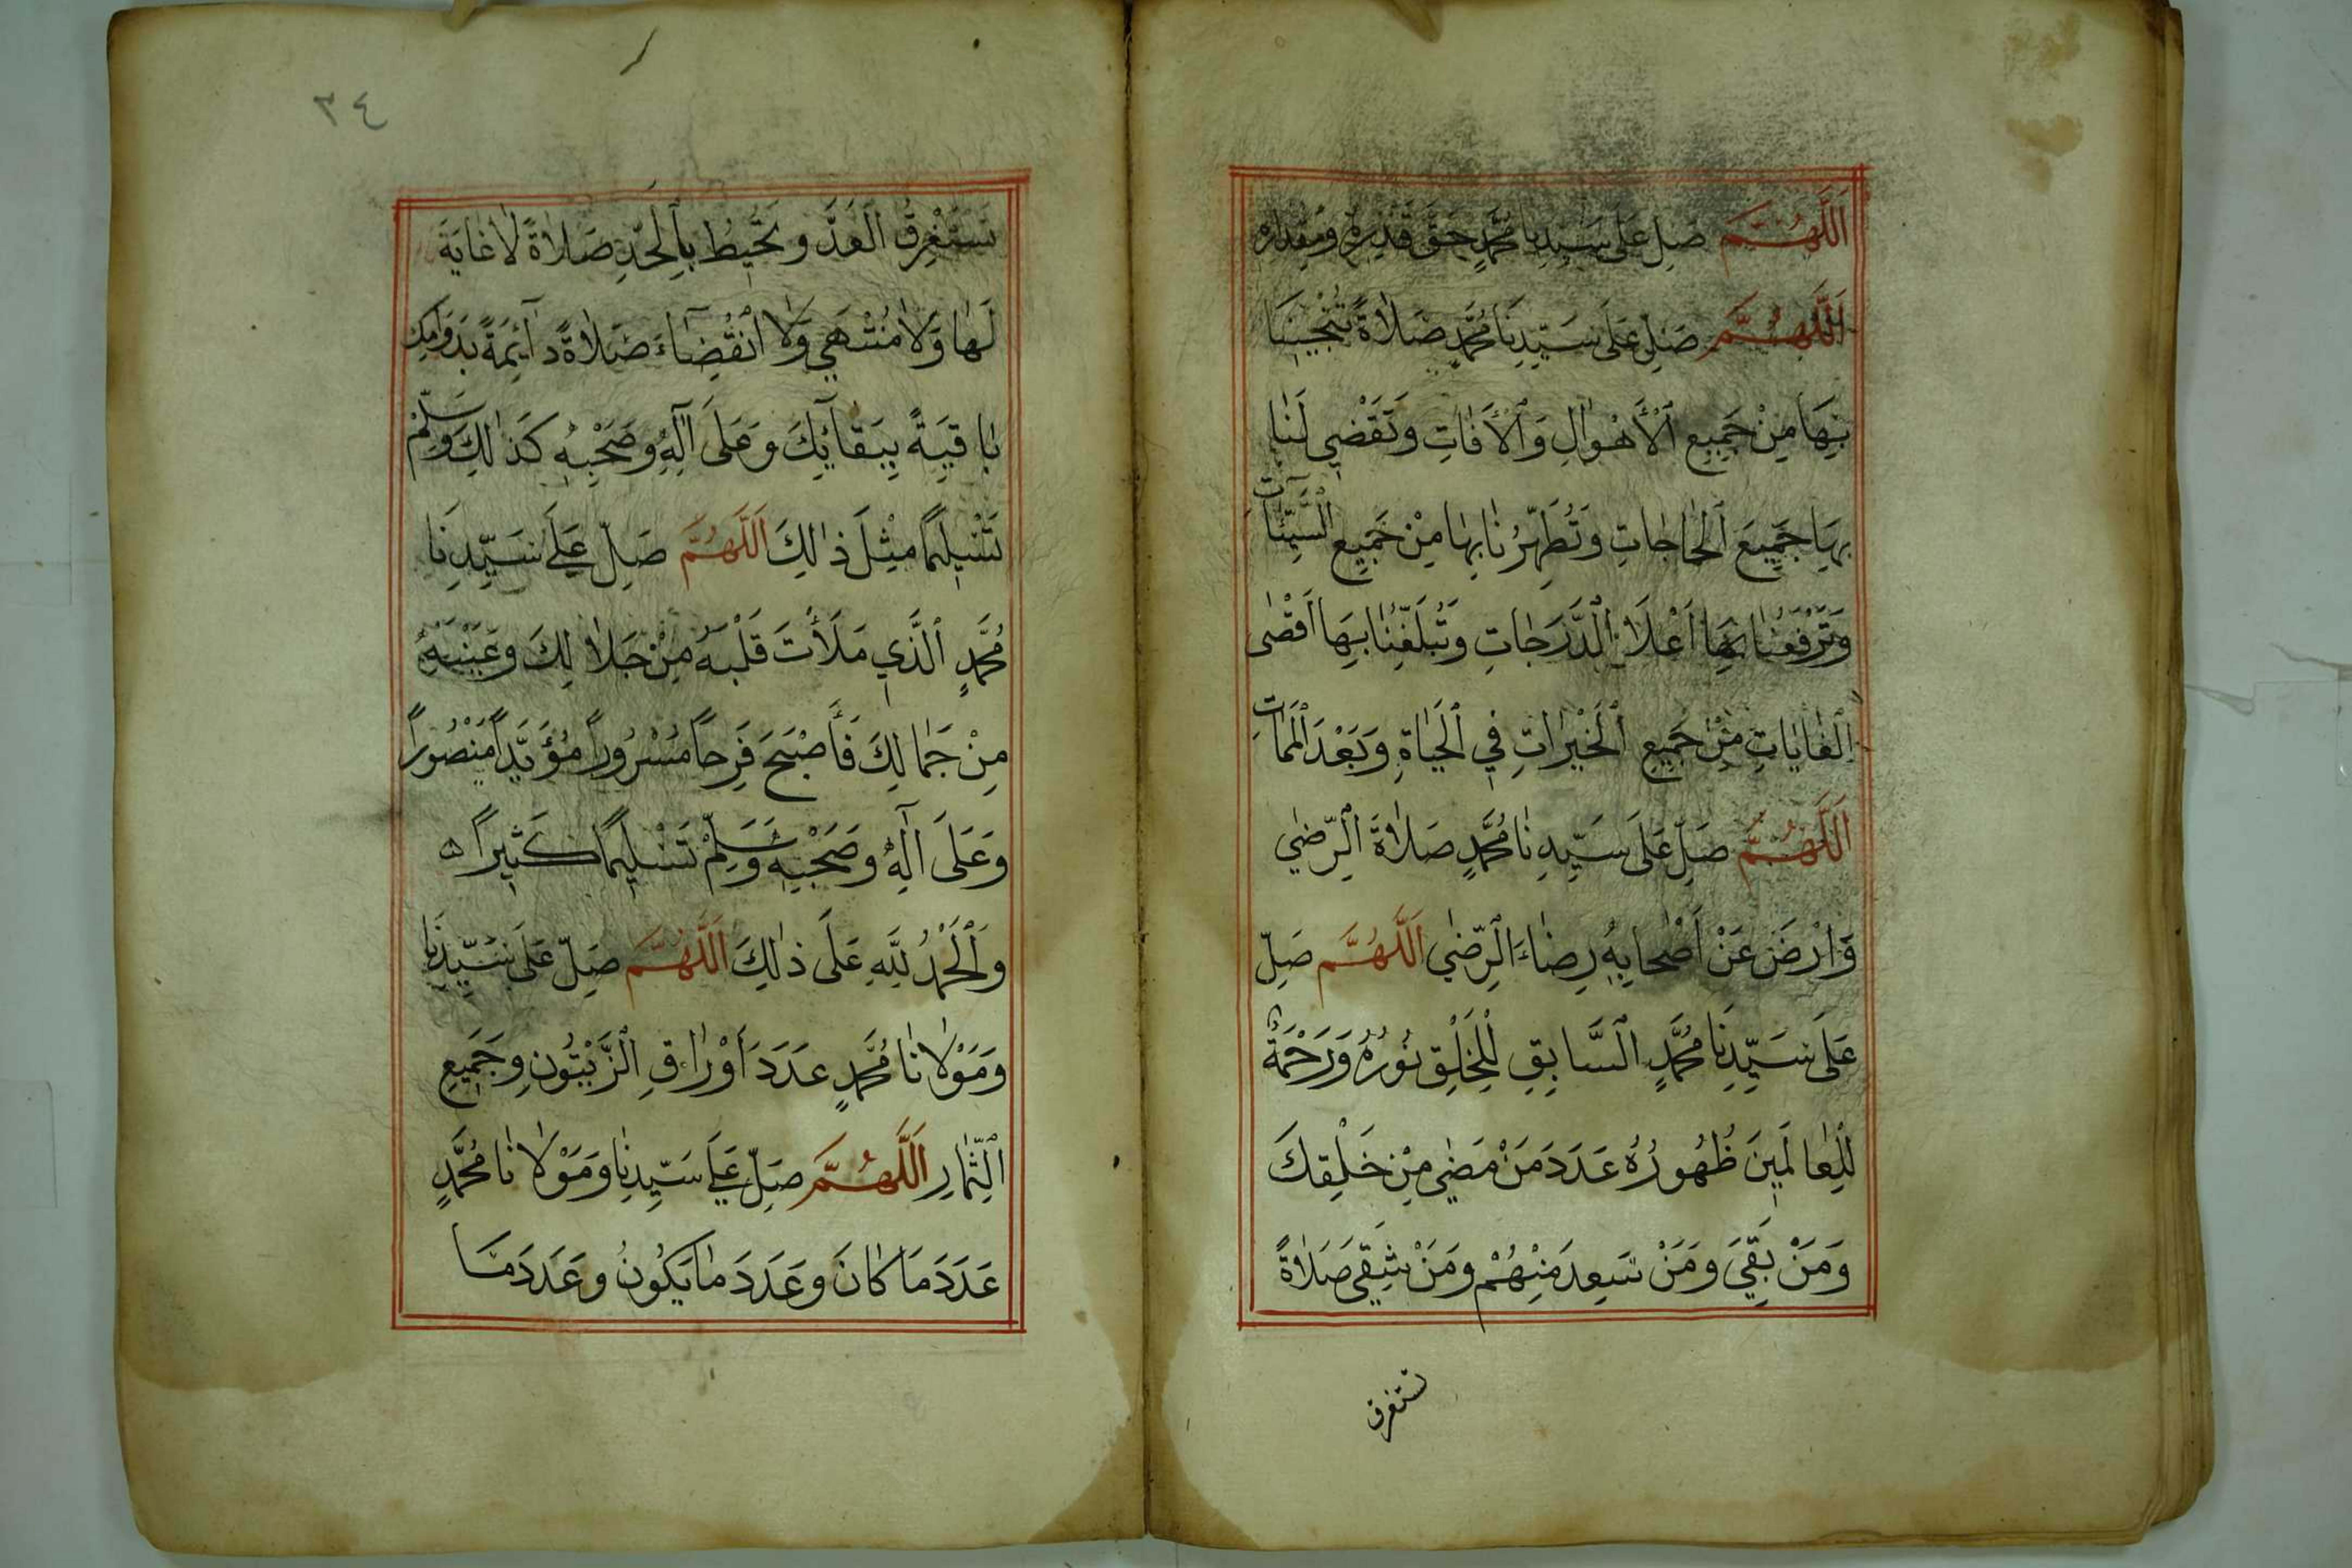 اَللَّهُمَّ صَلِّ عَلَى سَيِّدِنَا مُحَمَّدٍ حَقَّ قَدْرِهِ وَمِقْدَارِهِ
اَللَّهُمَّ صَلِّ عَلَى سَيِّدِنَا مُحَمَّدٍ صَلَاةً تُنْجِينَا
بِهَا مِنْ جَمِيعِ ٱلْأَهْوَالِ وَٱلْأَفَاتِ وَتَقْضِي لَنَا
بِهَا جَمِيعَ ٱلْحَاجَاتِ وَتُطَهِّرُنَا بِهَا مِنْ جَمِيعِ ٱلسَّيِّئَاتِ
وَتَرْفَعُنَا بِهَا اَعْلَا ٱلدَّرَجَاتِ وَتُبَلِّغُنَا بِهَا اَقْصَى
ٱلْغَايَاتِ مِنْ جَمِيعِ ٱلْخَيْرَاتِ فِي ٱلْحَيَاةِ وَبَعْدَ ٱلْمَمَاتِ
اَللَّهُمَّ صَلِّ عَلَى سَيِّدِنَا مُحَمَّدٍ صَلَاةَ ٱلرِّضَي
وَارْضَ عَنْ اَصْحَابِهِ رِضَاءَ ٱلرِّضَي اَللَّهُمَّ صَلِّ
عَلَى سَيِّدِنَا مُحَمَّدٍ ٱلسَّابِقِ لِلْخَلْقِ نُورُهُ وَرَحْمَةٌ
لِلْعَالَمِينَ ظُهُورُهُ عَدَدَ مَنْ مَضَي مِنْ خَلْقِكَ
وَمَنْ بَقِيَ وَمَنْ سَعِدَ مِنْهُمْ وَمَنْ شَقِيَ صَلَاةً
تستغرق
٣٤
تَسْتَغْرِقُ ٱلْعَدَّ وَتُحِيطُ بِٱلْحَدِّ صَلَاةً لَا غَايَةَ
لَهَا وَلَا مُنْتَهَي وَلَا ٱنْقِضَاءَ صَلَاةً دَآئِمَةً بِدَوَامِكَ
بَاقِيَةً بِبَقَآئِكَ وَعَلَى آلِهِ وَصَحْبِهِ كَذَلِكَ وَسَلِّمْ
تَسْلِيمًا مِثْلَ ذَالِكَ اَللَّهُمَّ صَلِّ عَلَي سَيِّدِنَا
مُحَمَّدٍ ٱلَّذِي مَلَأْتَ قَلْبَهُ مِنْ جَلَالِكَ وَعَيْنَيْهُ
مِنْ جَمَالِكَ فَأَصْبَحَ فَرِحاً مَسْرُوراً مُؤَيَّداً مَنْصُوراً
وَعَلَى آلِهِ وَصَحْبِهِ وَسَلِّمْ تَسْلِيمًا كَثِيراً ه
وَٱلْحَمْدُ لِلَّهِ عَلَى ذَالِكَ اَللَّهُمَّ صَلِّ عَلَى سَيِّدِنَا
وَمَوْلَانَا مُحَمَّدٍ عَدَدَ اَوْرَاقِ ٱلزَّيْتُونِ وَجَمِيعِ
ٱلثِّمَارِ اَللَّهُمَّ صَلِّ عَلَي سَيِّدِنَا وَمَوْلَانَا مُحَمَّدٍ
عَدَدَ مَا كَانَ وَعَدَدَ مَا يَكُونُ وَعَدَدَ مَا